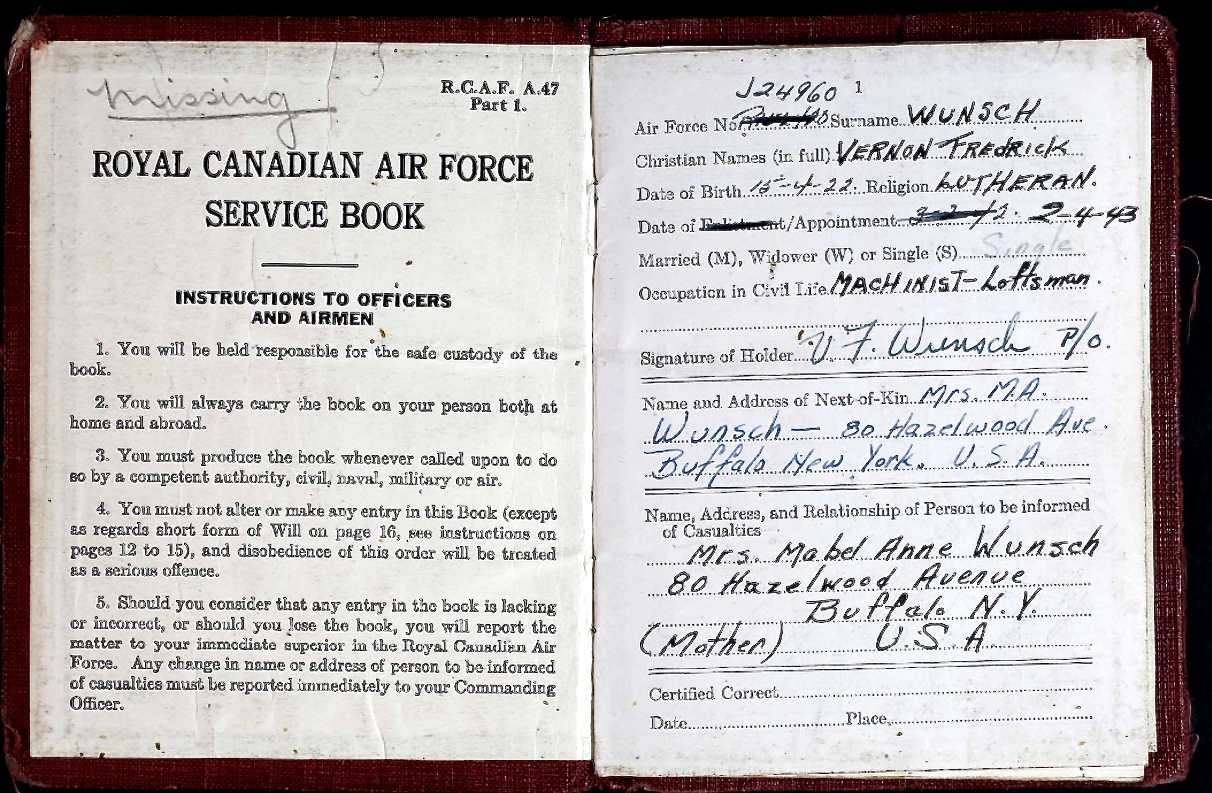 missing
R.C.A.F. A.47
Part 1.
ROYAL CANADIAN AIR FORCE
SERVICE BOOK
INSTRUCTIONS TO OFFICERS
AND AIRMEN
1. You will be held responsible for the safe custody of the
book.
2. You will always carry the book on your person both at
home and abroad.
3. You must produce the book whenever called upon to do
so by a competent authority, civil, naval, military or air.
4. You must not alter or make any entry in this Book (except
as regards short form of Will on page 16, see instructions on
pages 12 to 15), and disobedience of this order will be treated
as a serious offence.
5. Should you consider that any entry in the book is lacking
or incorrect, or should you lose the book, you will report the
matter to your immediate superior in the Royal Canadian Air
Force. Any change in name or address of person to be informed
of casualties must be reported immediately to your Commanding
Officer.
J24960 1
Air Force No. Surname WUNSCH
Christian Names (in full) VERNON FREDRICK
Date of Birth 15-4-22. Religion LUTHERAN.
Date of Enlistment/Appointment 2-4-43
Married (M), Widower (W) or Single (S) Single
Occupation in Civil Life MACHINIST-Loftsman.
Signature of Holder V F. Wunsch P/O.
Name and Address of Next-of-Kin Mrs. M.A.
Wunsch — 80 Hazelwood Ave.
Buffalo New York. U.S.A.
Name, Address, and Relationship of Person to be informed
of Casualties
Mrs. Mabel Anne Wunsch
80 Hazelwood Avenue
Buffalo N.Y.
(Mother) U.S.A
Certified Correct
Date Place,